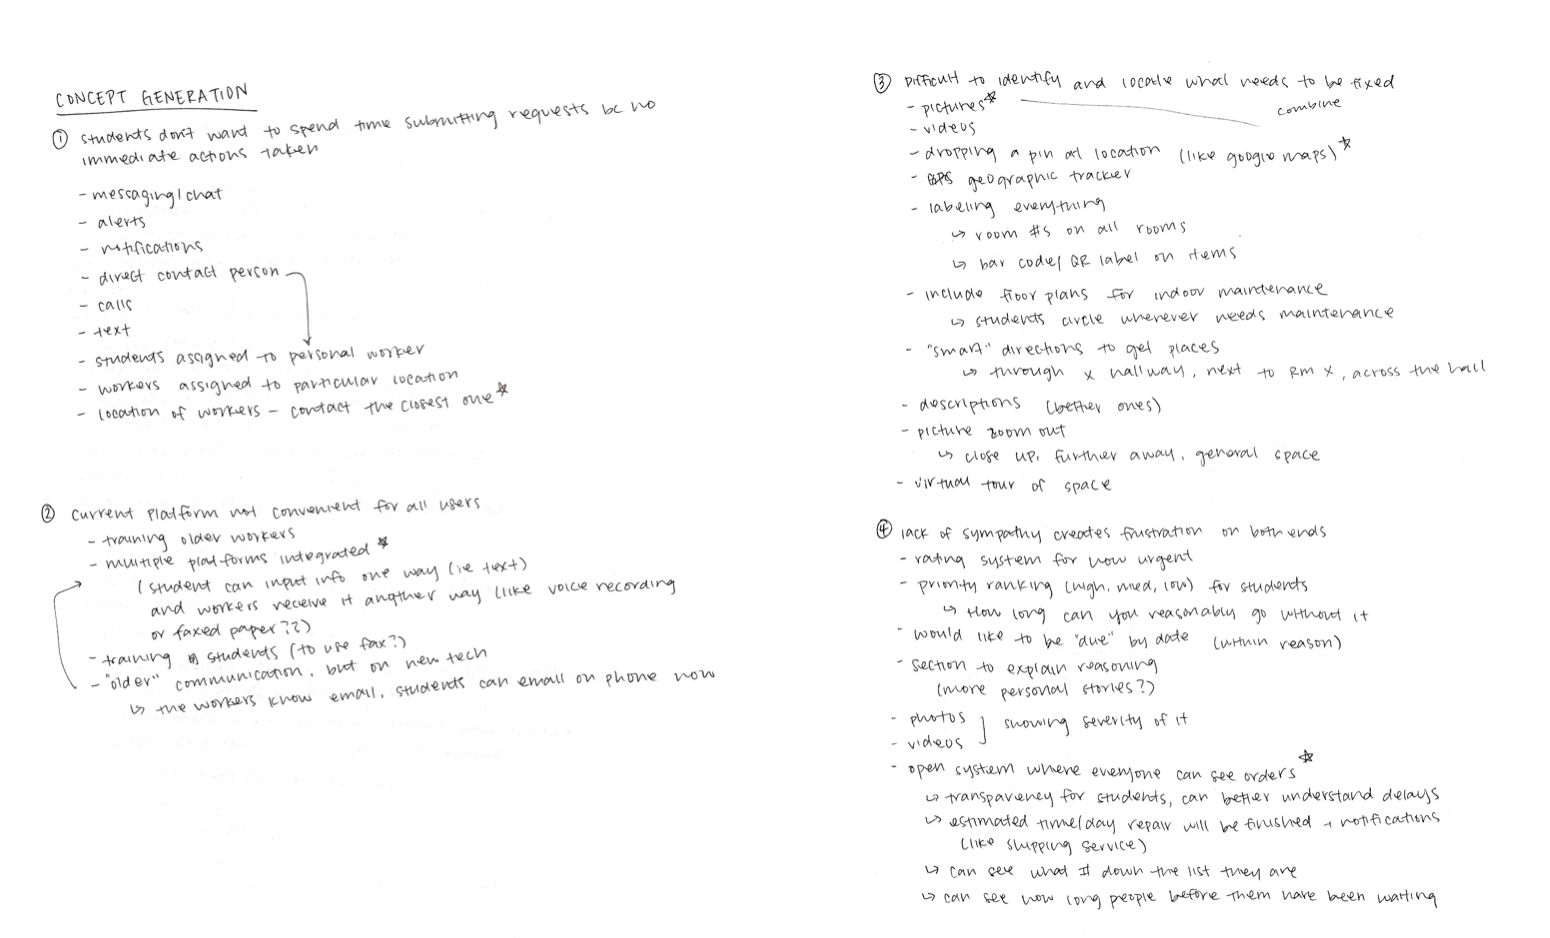 CONCEPT GENERATION
① students don't want to spend time submitting requests bc no
immediate actions taken
- messaging/chat
- alerts
- notifications
- direct contact person
- calls
- text
- students assigned to personal worker
- workers assigned to particular location
- location of workers - contact the closest one ☆
② current platform not convenient for all users
- training older workers
- multiple platforms integrated ☆
(student can input info one way (ie text)
and workers receive it another way (like voice recording
or faxed paper??)
- training students (to use fax?)
- "older" communication, but on new tech
↳ the workers know email, students can email on phone now
③ Difficult to identify and locate what needs to be fixed
- pictures ☆
combine
- videos
- dropping a pin at location (like google maps) ☆
- GPS geographic tracker
- labeling everything
↳ room #s on all rooms
↳ bar code/ QR label on items
- include floor plans for indoor maintenance
↳ students circle wherever needs maintenance
- "smart" directions to get places
↳ through x hallway, next to Rm x, across the hall
- descriptions (better ones)
- picture zoom out
↳ close up, further away, general space
- virtual tour of space
④ lack of sympathy creates frustration on both ends
- rating system for how urgent
- priority ranking (high, med, low) for students
↳ How long can you reasonably go without it
- would like to be "due" by date (within reason)
- section to explain reasoning
(more personal stories?)
- photos
- videos
showing severity of it
- open system where everyone can see orders ☆
↳ transparency for students, can better understand delays
↳ estimated time/day repair will be finished + notifications
(like shipping service)
↳ can see what # down the list they are
↳ can see how long people before them have been waiting